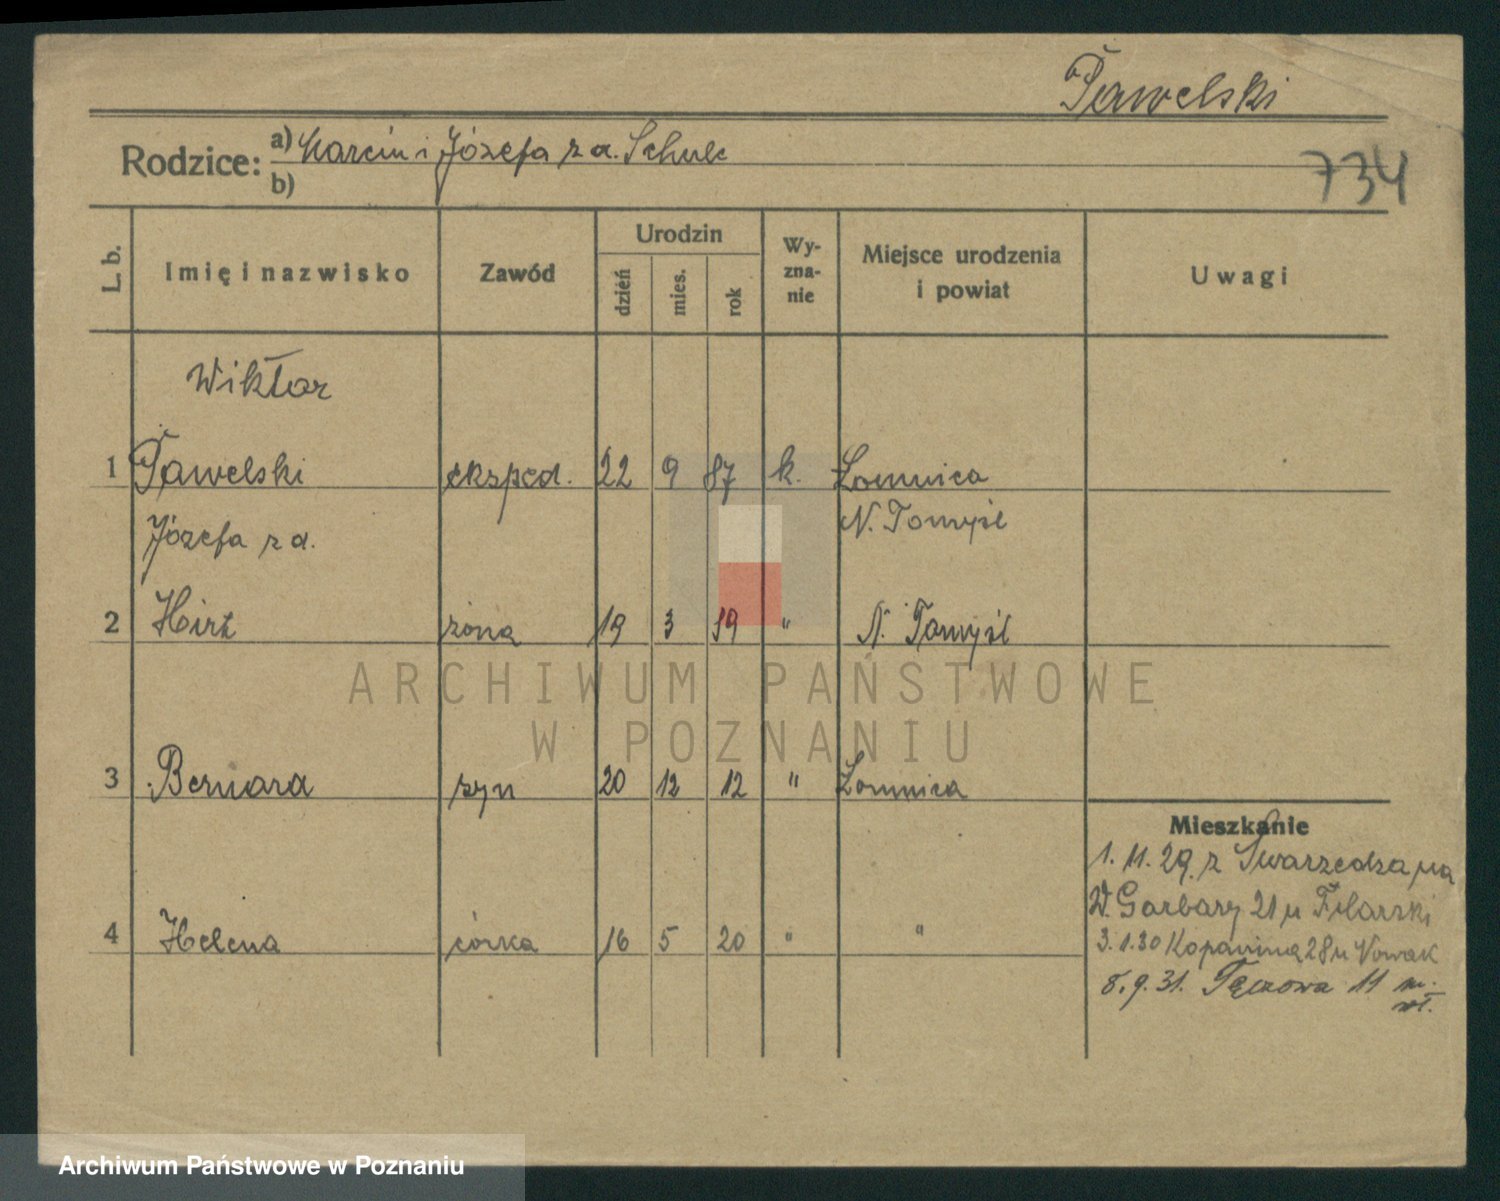 Pawelski
Rodzice: a) Marcin i Józefa z d. Schulc
b)
734
L. b.
Imię i nazwisko
Zawód
Urodzin
dzień
mies.
rok
Wy-
zna-
nie
Miejsce urodzenia
i powiat
Uwagi
Wiktor
1 Pawelski eksped. 22 9 87 k. Łomnica
Józefa z d. N. Tomyśl
2 Hirt żona 19 3 89 " N. Tomyśl
3 Bernard syn 20 12 12 " Łomnica
4 Helena córka 16 5 20 " "
Mieszkanie
1. 11. 29. z Swarzędza na
W. Garbary 21 u Filarski
3. 1. 30 Kopanina 28 u Nowak
8. 9. 31. Tęczowa 11 m.
wł.
ARCHIWUM PAŃSTWOWE
W POZNANIU
Archiwum Państwowe w Poznaniu